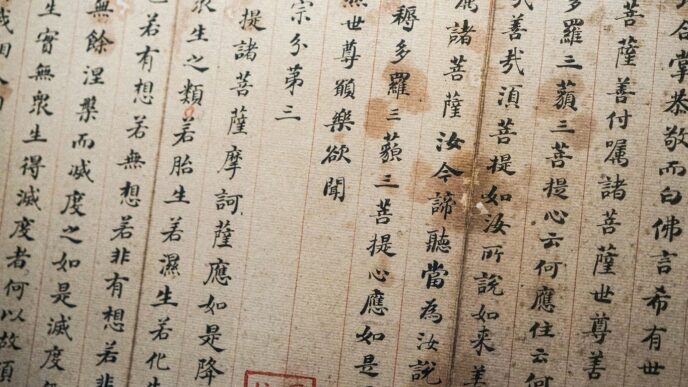 合掌恭敬而白佛言希有世
菩薩善付囑諸菩薩世尊善
多羅三藐三菩提心云何應住云何
善哉須菩提如汝所說如來善
囑諸菩薩汝今諦聽當為汝說
耨多羅三藐三菩提心應如是
世尊願樂欲聞
宗分第三
提諸菩薩摩訶薩應如是降
眾生之類若胎生若濕生若化生
若有想若無想若非有想若非
無餘涅槃而滅度之如是滅度
生實無衆生得滅度者何以故須